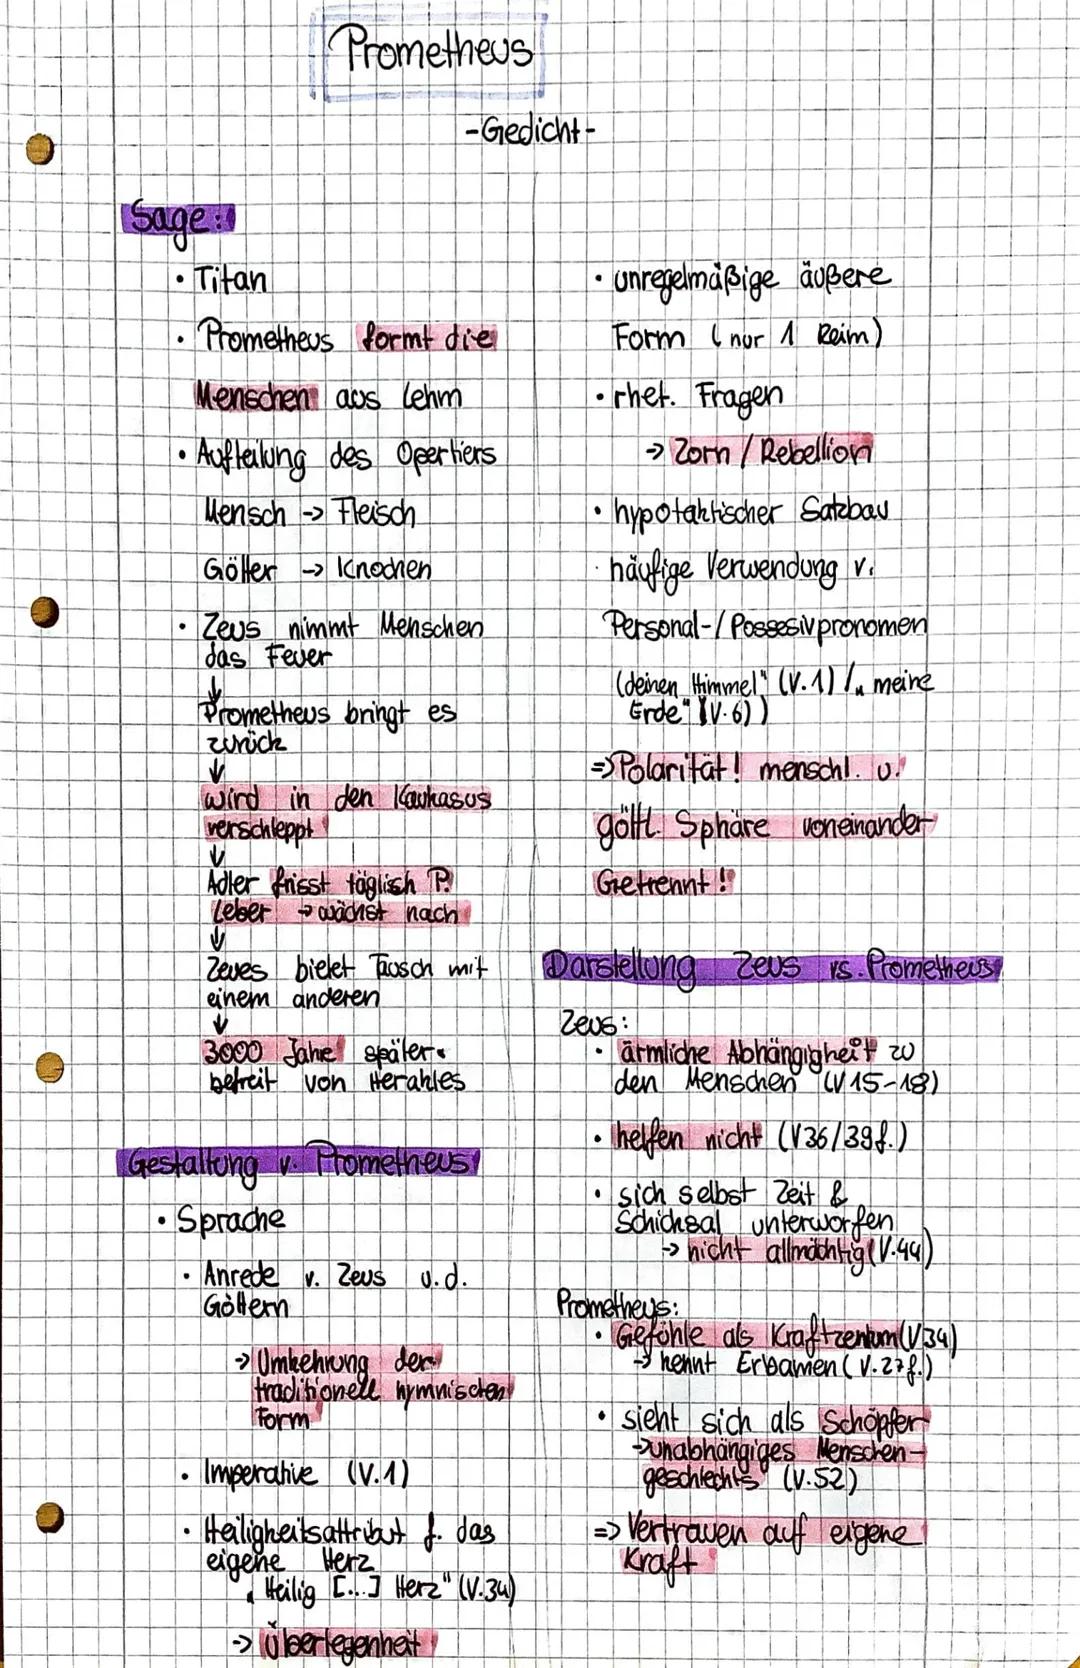 Prometheus
-Gedicht-
Sage:
• Titan
• Prometheus formt die
Menschen aus Lehm
• Aufteilung des Opertiers
Mensch → Fleisch
Götter → Knochen
• Zeus nimmt Menschen
das Feuer
↓
Prometheus bringt es
zurück
↓
wird in den Kaukasus
verschleppt
↓
Adler frisst täglich P.
Leber → wächst nach
↓
Zeues bietet Tausch mit
einem anderen
↓
3000 Jahre später
befreit von Herakles
Gestaltung v. Prometheus
• Sprache
• Anrede v. Zeus u.d.
Göttern
→ Umkehrung der
traditionell hymnischen
Form
• Imperative (V.1)
• Heiligkeitsattribut f. das
eigene Herz
„Heilig [...] Herz" (V.34)
→ Überlegenheit
• unregelmäßige äußere
Form (nur 1 Reim)
• rhet. Fragen
→ Zorn / Rebellion
• hypotaktischer Satzbau
· häufige Verwendung v.
Personal-/Possesivpronomen
(deinen Himmel" (V.1) / „meine
Erde" (V.6))
=> Polarität! menschl. u.
göttl. Sphäre voneinander
Getrennt!
Darstellung Zeus vs. Prometheus
Zeus:
• ärmliche Abhängigkeit zu
den Menschen (V15-18)
• helfen nicht (V36/39f.)
• sich selbst Zeit &
Schicksal unterworfen
→ nicht allmächtig (V.44)
Prometheus:
• Gefühle als Kraftzentum (V34)
→ kennt Erbamen (V.27f.)
• sieht sich als Schöpfer
→ unabhängiges Menschen-
geschlechts (V.52)
=> Vertrauen auf eigene
Kraft